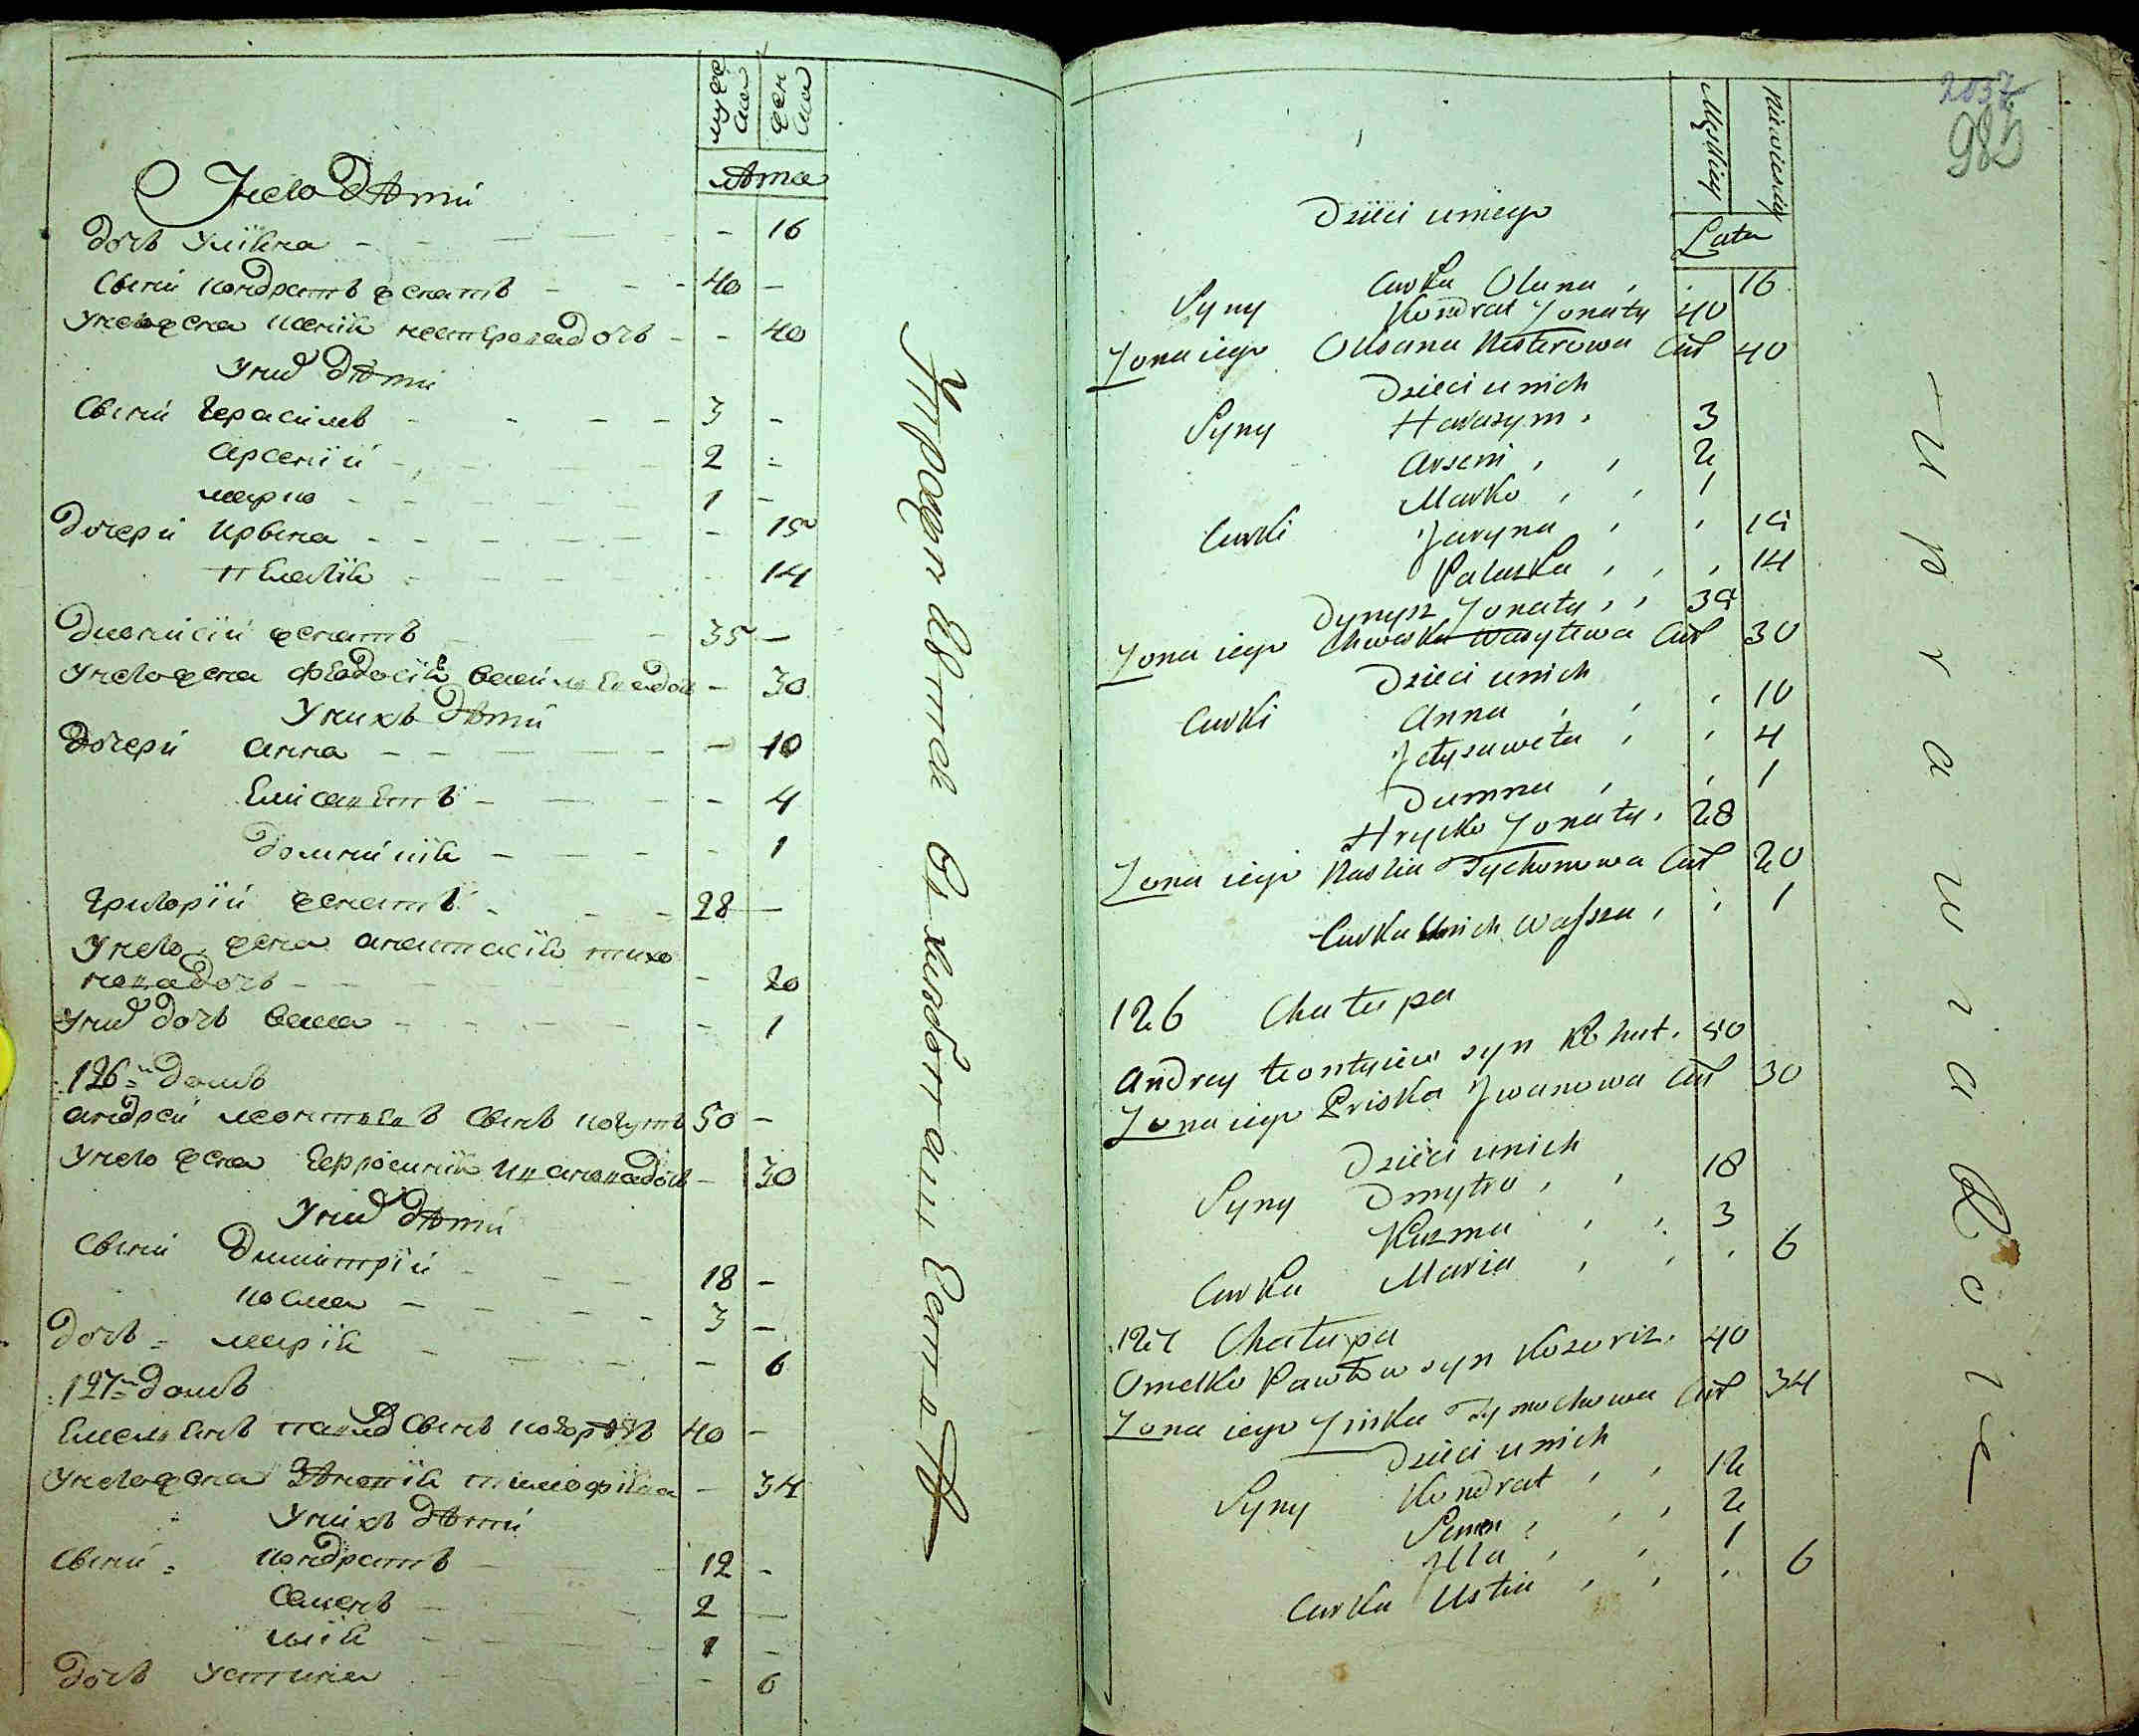 мужес ка
женс ка
лѣта
У него дѣти
дочь Улiяна - - 16
сыни кондратъ женатъ - - 40 -
У него жена ксенія нестерова дочь - - 40
У них дѣти
сыни Герасимъ - - 3 -
Арсенiй - 2 -
марко - - 1 -
дочери Ирына - - - 15
пелагія - - 14
дионисiй женатъ 35 -
У него жена феодосія василева доч - 30
У нихъ дѣти
дочери анна - - - 10
Елисаветъ - - - 4
домникiя - - - 1
Григорiй женатъ - - 28 -
У него жена анастасiя тихо
нова дочь - - - 20
У них дочь васса - - - 1
126й домъ
андрей леонтьевъ сынъ когутъ 50 -
У него жена Ефросинiя Иванова доч - 30
У них дѣти
сыни Димитрiй - - 18 -
косма - - 3 -
дочь марiя - - - 6
127й домъ
Емельянъ павлов сынъ 40 -
У него жена тимофiева - 34
У нихъ дѣти
сыни кондратъ - 12 -
Семенъ - 2 -
илiя - 1 -
дочь Устина - - 6
2037
982
Męskiey
Niewieskiey
Lata
Dzieci u niego
Curka Olana , . 16
Syny Kondrat Żonaty 40
Żona iego Oksana Nesterowa Cur 40
Dzieci u nich
Syny Harasym . 3
Arseni , , 2
Marko , , 1
Curki Jaryna , , 15
Palaszka , , , 14
Dynysz Żonaty , , 35
Żona iego Chweska Wasylewa Cur 30
Dzieci u nich
Curki Anna , , , 10
Jełysaweta , , 4
Dumna , , 1
Hryćko Żonaty . 28
Żona iego Nastia Tychonowa Cur 20
Curka u nich Wassa , , 1
126 Chałupa
Andrey Leontyiew syn Kohut . 50
Żona iego Priska Jwanowa Cur 30
Dzieci u nich
Syny Dmytro , , 18
Kuzma , , 3
Curka Maria , , . 6
127 Chałupa
Omelko Pawłow syn Kozoriz . 40
Żona iego Zińka Tymochowa Cur 34
Dzieci u nich
Syny Kondrat , , 12
Semen , , , 2
Jlla , , 1
Curka Ustia , , . 6